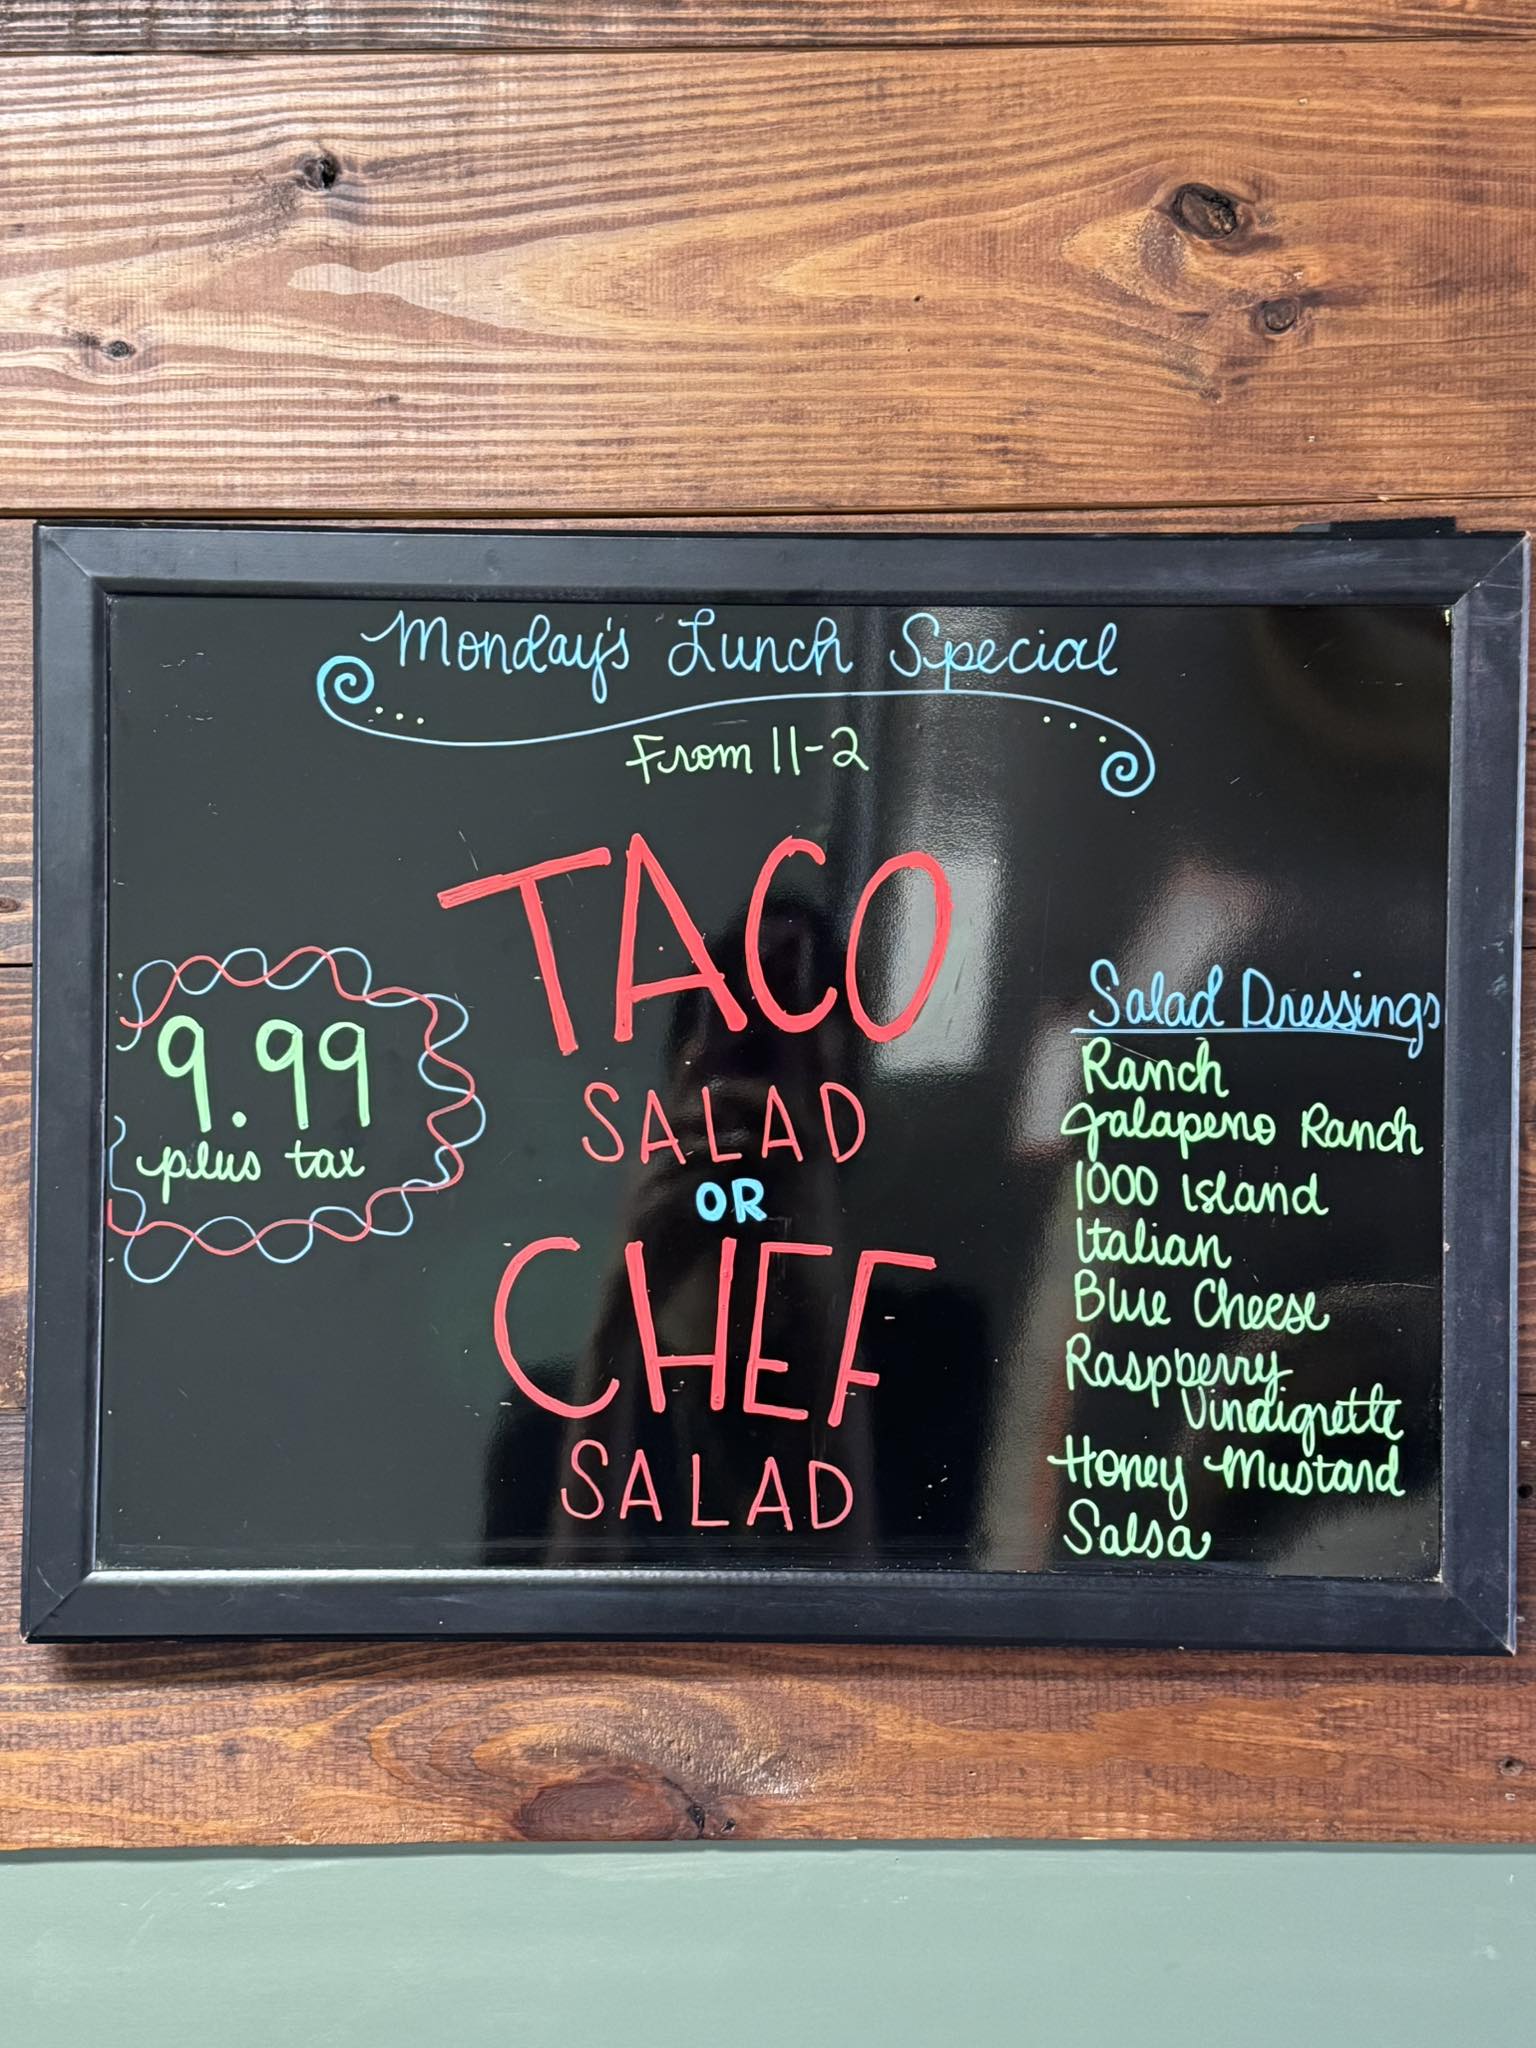 Monday's Lunch Special
From 11-2
TACO
SALAD
OR
CHEF
SALAD
9.99
plus tax
Salad Dressings
Ranch
Jalapeno Ranch
1000 Island
Italian
Blue Cheese
Raspberry
Vindigrette
Honey Mustard
Salsa